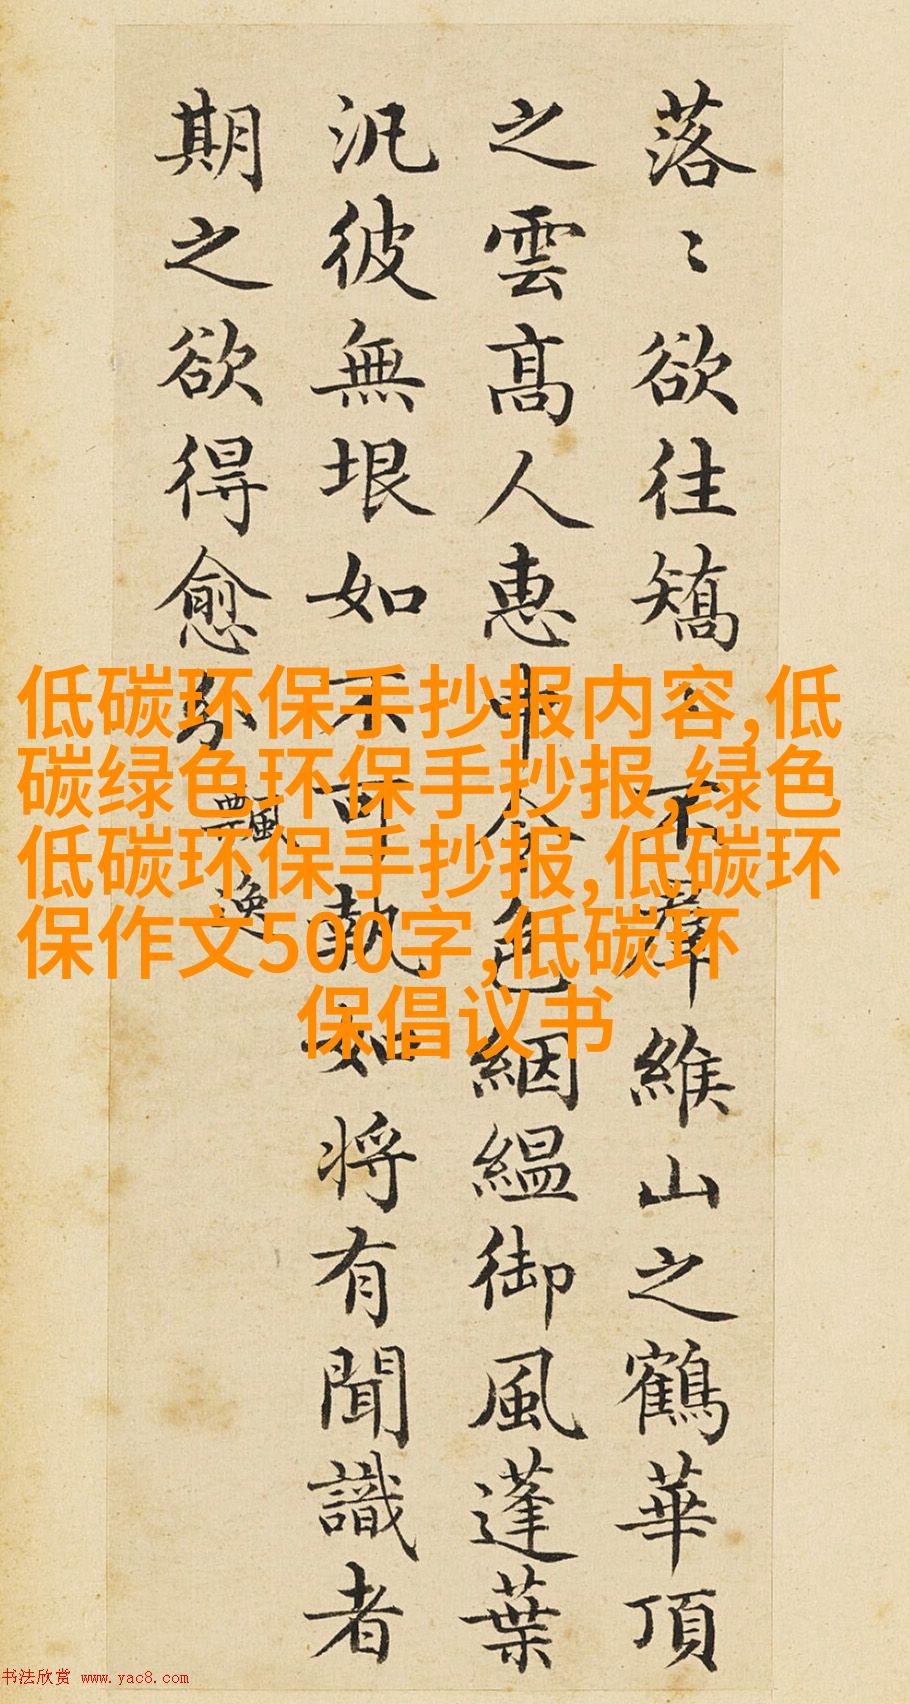 落〻欲往矯〻不羣緱山之鶴華頂
之雲髙人惠中令色絪緼御風蓬葉
汎彼無垠如不可執如將有聞識者
期之欲得愈分
飄逸
低碳环保手抄报内容,低
碳绿色环保手抄报,绿色
低碳环保手抄报,低碳环
保作文500字,低碳环
保倡议书
书法欣赏 www.yac8.com